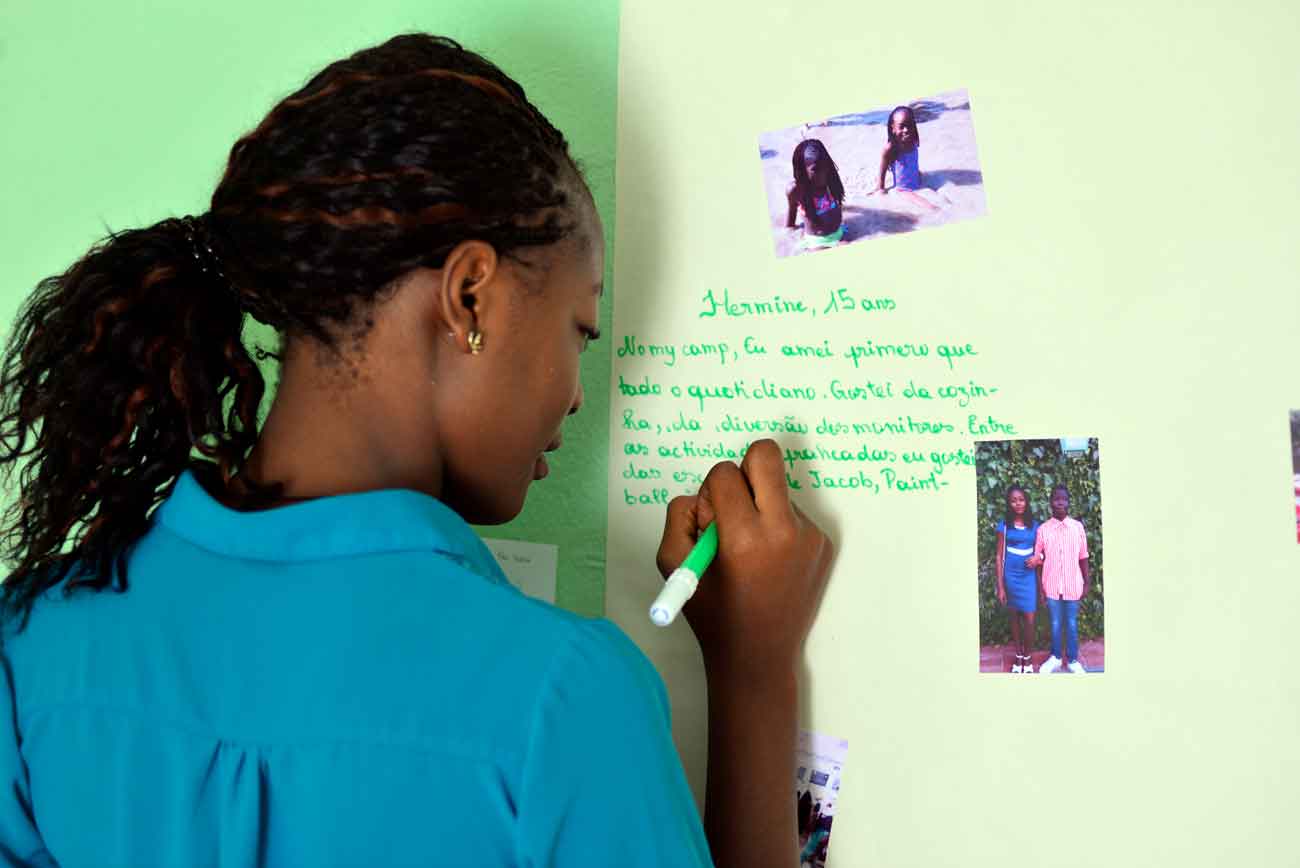 Hermine, 15 ans
No my camp, Eu amei primero que
tado o quotidiano. Gostei da cozin-
ha, da diversão dos monitores. Entre
as praticadas eu gostei
das Jacob, Paint-
ball